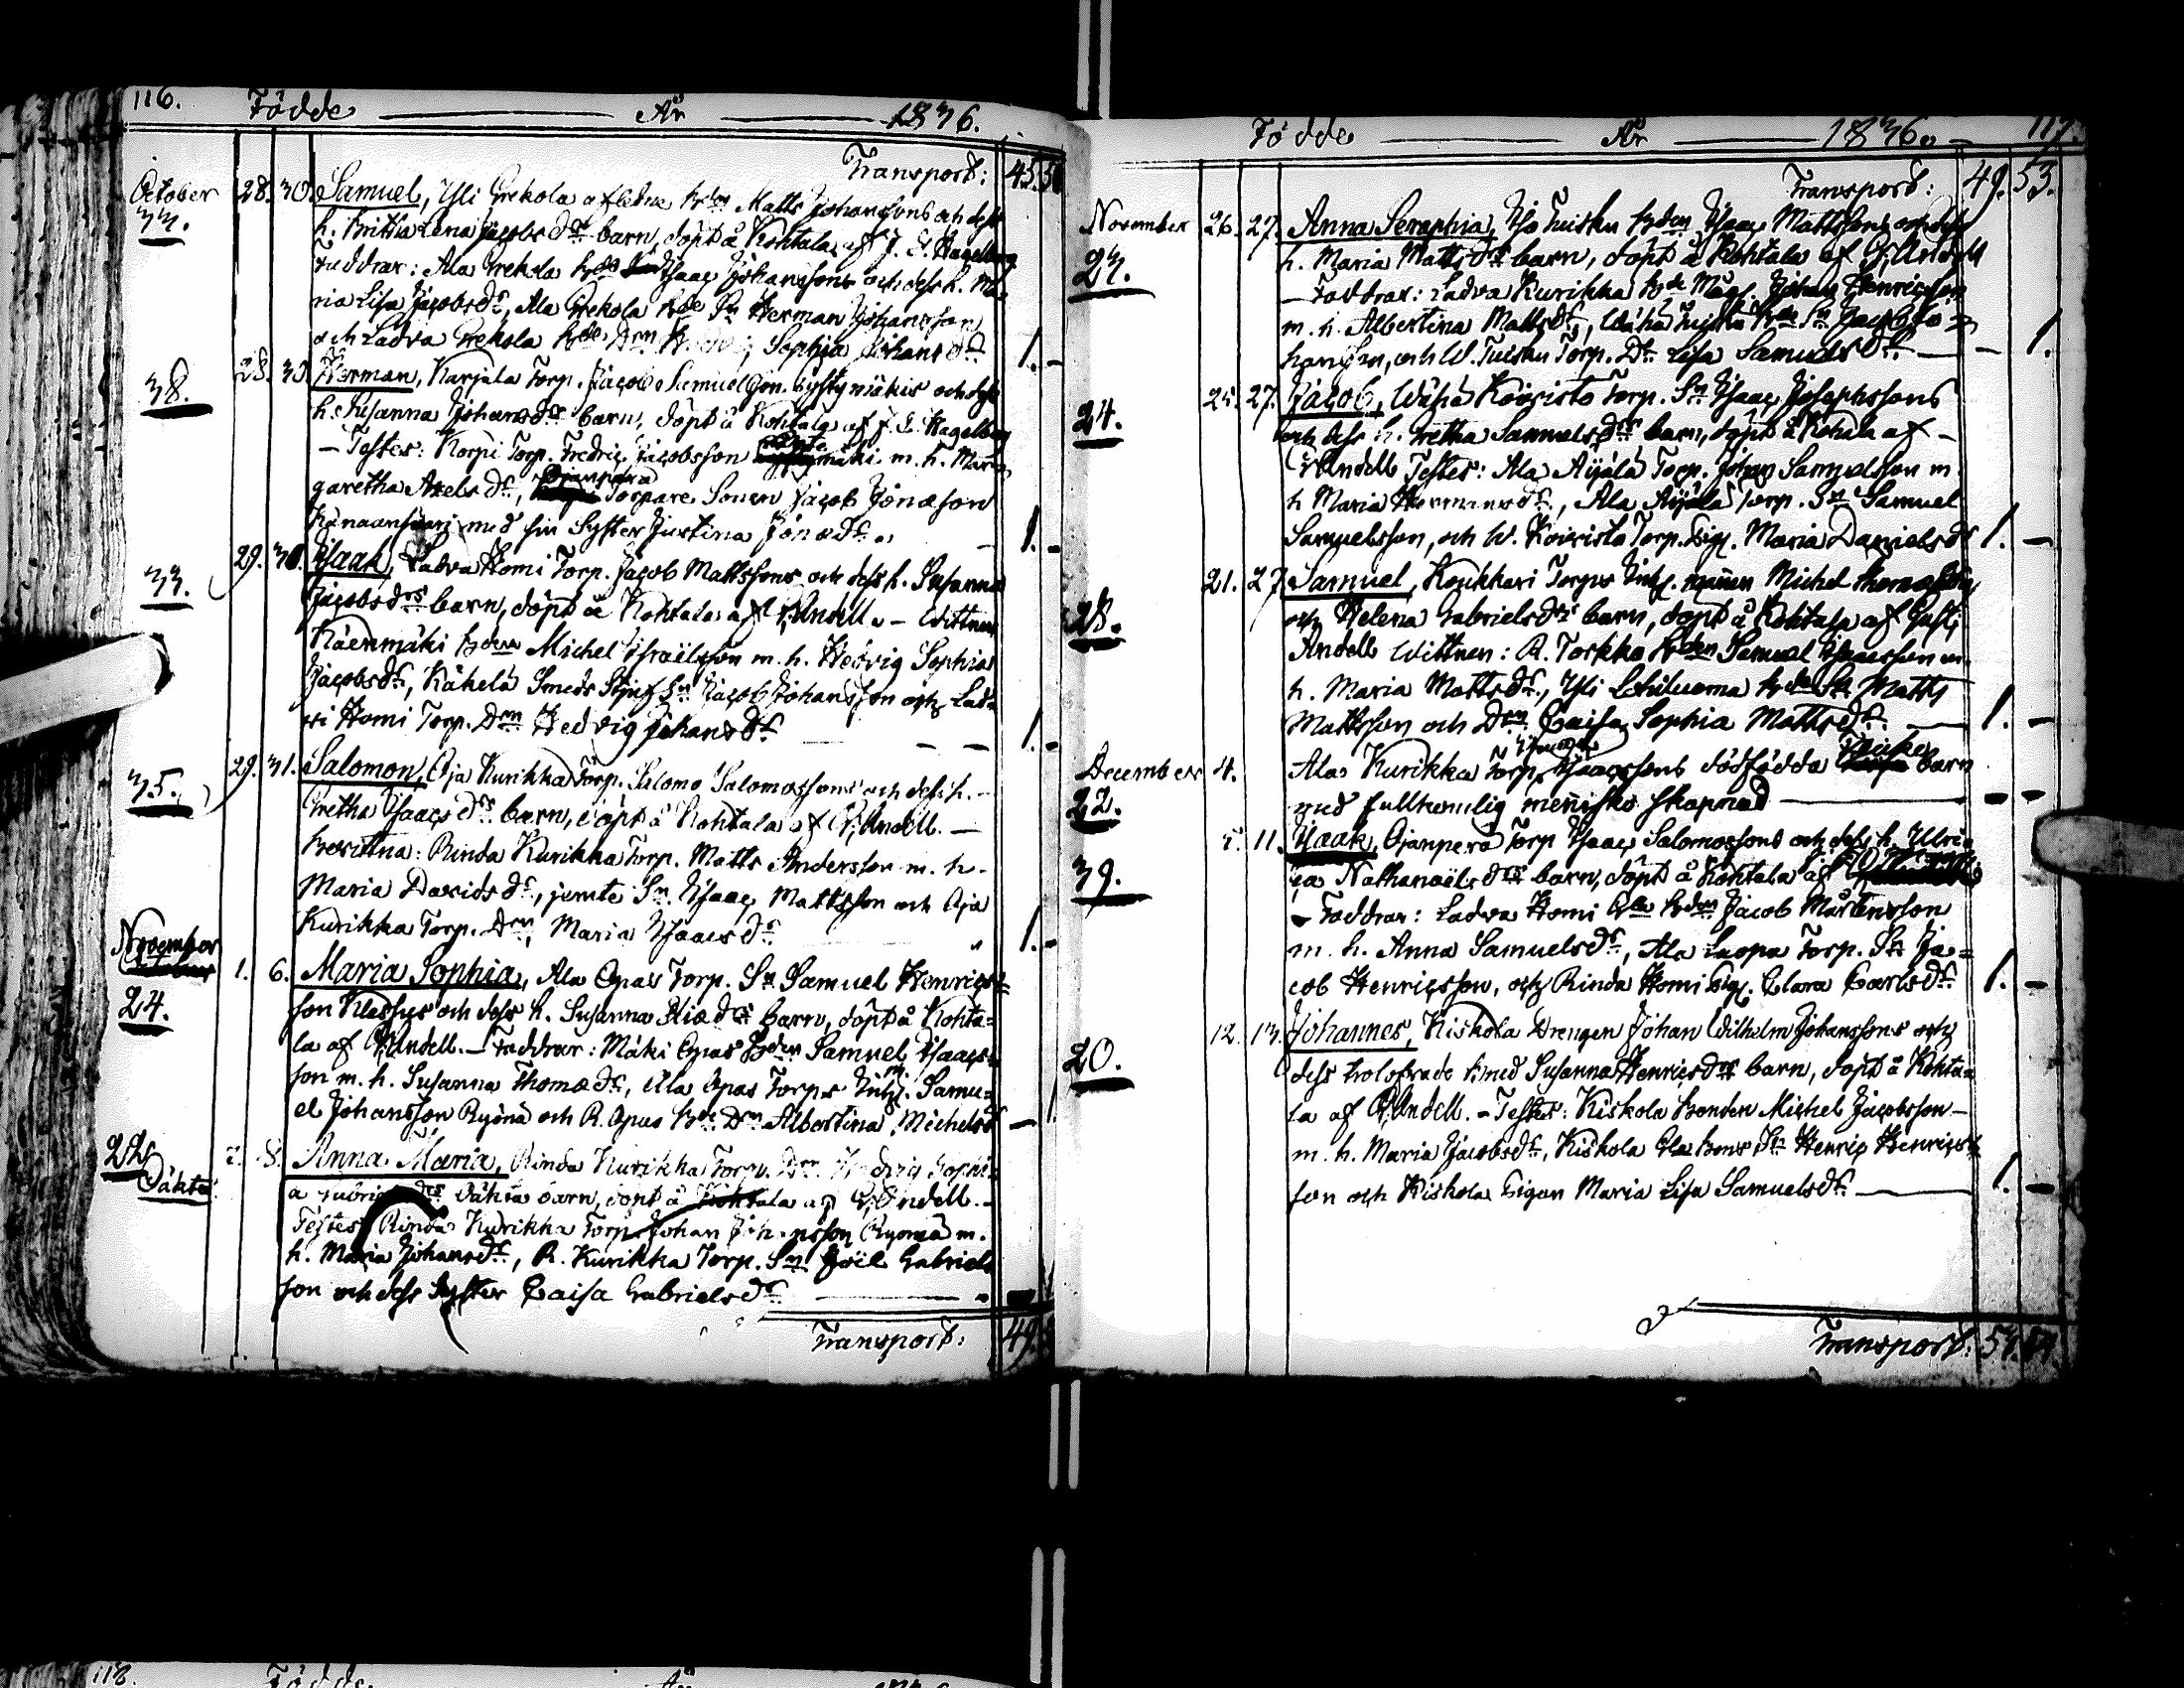 116. Födde År 1836.
Transport: 45. 5
October 28. 30. Samuel, Yli Grekola aflidne Matts Johanssons och dess
33. h. Britha Lena Jacobs drs barn, döpt å Kohtala af J. E. Hagelberg
Faddrar: Ala Grekola Isaac Johansson och dess h. Ma-
ria Lisa Jacobsdr, Ala Grekola Herman Johansson
och Ladva Grekola Sophia Johansdr 1. -
28. 30. Herman, Karjala Torp. Jacob Samuelsson och dess
38. h. Susanna Johansdrs barn, döpt å Kohtala af J. E. Hagelberg
- Testes: Korpi Torp. Fredric Jacobsson m. h. Mar-
garetha Axelsdr, Ojanperä Torpare Sonen Jacob Jonæson
med sin Syster Justina Jonædr. - 1. -
29. 30. Isaak, Ladva Homi Torp. Jacob Mattssons och dess h. Susanna
33. Jacobsdrs barn, döpt å Kohtala af G. Andell. - Wittnen
Käenmäki Michel Israëlsson m. h. Hedvig Sophia
Jacobsdr, Käkelä Smeds Jacob Johansson och Lad-
Homi Torp. Drn Hedvig Johansdr - 1. -
29. 31. Salomon, Oja Kurikka Torp. Salomo Salomossons och dess h. -
35. Gretha Isaacsdrs barn, döpt å Kohtala af G. Andell. -
Rinda Kurikka Torp. Matts Andersson m. h.
Maria Davidsdr, jemte Sn Isaac Mattsson och Oja
Kurikka Torp. Drn, Maria Isaacsdr 1. -
November 1. 6. Maria Sophia, Ala Opas Torp. Sn Samuel Henrics-
24. son och dess h. Susanna drs barn, döpt å Kohta-
la af G. Andell. - Faddrar: Mäki Opas Samuel Isaacs-
son m. h. Susanna Thomædr, Ala Opas Torps Inh. Samu-
el Johansson Ryönä och R. Opas Drn Albertina Michelsdr - 1.
22. 2. 8. Anna Maria, Rinda Kurikka Torp. Drn Hedvig Sophi-
Oäkta a Gabrielsdrs oäkta barn, döpt å Kohtala af G. Andell. -
Testes Rinda Kurikka Torp. Johan Johansson Ryönä m.
h. Maria Johansdr, R. Kurikka Torp. Sn Joël Gabriels-
son och dess Syster Caisa Gabrielsdr
Transport: 49.
Födde År 1836. 117.
Transport: 49. 53.
November 26. 27. Anna Seraphia, Iso Tuisku Isaac Mattssons och dess
23. h. Maria Mattsdrs barn, döpt å Kohtala af G. Andell
- Faddrar: Ladva Kurikka Måg. Johan Henricsson
m. h. Albertina Mattsdr, Wähä Tuisku Sn Jacob Jo-
hansson, och W. Tuisku Torp. Dr Lisa Samuelsdr - - 1.
25. 27. Jacob, Wähä Koivisto Torp. Sn Isaac Josephssons
24. och dess h. Gretha Samuelsdrs barn, döpt å Kohtala af -
G. Andell Testes: Ala Äijälä Torp. Johan Samuelsson m.
h Maria Hermansdr, Ala Äijälä Torp. Sn Samuel
Samuelsson, och W. Koivisto Torp. Pig. Maria Danielsdr 1. -
21. 27. Samuel, Koukkari Torps Inh. mannen Michel
28. och Helena Gabrielsdrs barn, döpt å Kohtala af Gust.
Andell Wittnen: R. Torkko Samuel Isaacsson m.
h. Maria Mattsdr, Yli Matts
Mattsson och Drn Caisa Sophia Mattsdr - 1. -
December 4. Ala Kurikka Torp. Isaacssons dödfödda barn
22. med fullkomlig menisko skapnad - - -
5. 11. Isaak, Ojanperä Torp Isaac Salomossons och dess h. Ulri-
39. ca Nathanaëlsdrs barn, döpt å Kohtala af
- Faddrar: Ladva Homi Jacob Mårtensson
m. h. Anna Samuelsdr, Ala Luopa Torp. Sn Ja-
cob Henricsson, och Rinda Homi Pig. Clara Carlsdr 1. -
12. 13. Johannes, Kiskola Drengen Johan Wilhelm Johanssons och
20. dess Susanna Henricsdrs barn, döpt å Kohta-
la af G. Andell. - Testes: Kiskola Bonden Michel Jacobsson -
m. h. Maria Jacobsdr, Kiskola Sn Henric Henrics-
son och Kiskola Pigan Maria Lisa Samuelsdr. - 1. -
Transport: 53.
118. Födde År